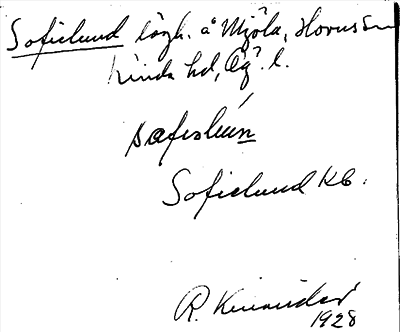 Sofielund lägh. å Mjöla, Horns sn
Kinda hd, Ög. l.
sofislún
Sofielund KB.
R. Kinander
1928